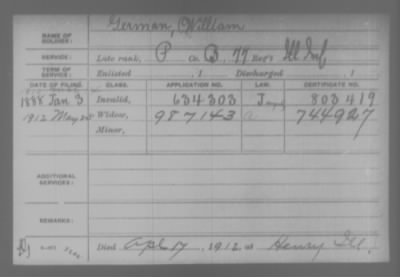 German, William
NAME OF SOLDIER:
SERVICE: Late rank, P Co. B, 77 Reg't Ill Inf
TERM OF SERVICE: Enlisted , 1 Discharged , 1
DATE OF FILING. CLASS. APPLICATION NO. LAW. CERTIFICATE NO.
1888 Jan 3 Invalid, 634303 803419
1912 May Widow, 987143 a 744927
Minor,
ADDITIONAL SERVICES:
REMARKS:
Died Apl 17, 1912 at Henry Ill.